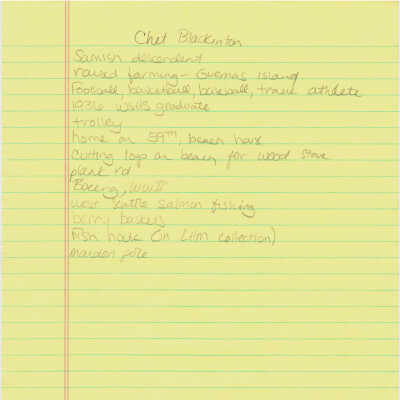 Chet Blackinton
Samish descendent
raised farming - Guemas Island
Football, basketball, baseball, track athlete
1936 WSHS graduate
trolley
home on 59TH, beach house
Cutting logs on beach for wood stove
plank rd
Boeing, WWII
West Seattle salmon fishing
berry baskets
Fish hook (in LHM collection)
maiden pole